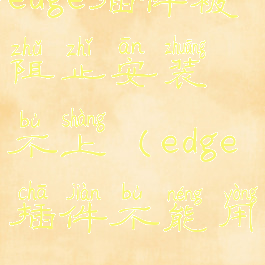 zǔ zhǐ ān zhuāng
阻止安装
bú shàng
不上（edge
chā jiàn bù néng yòng
插件不能用